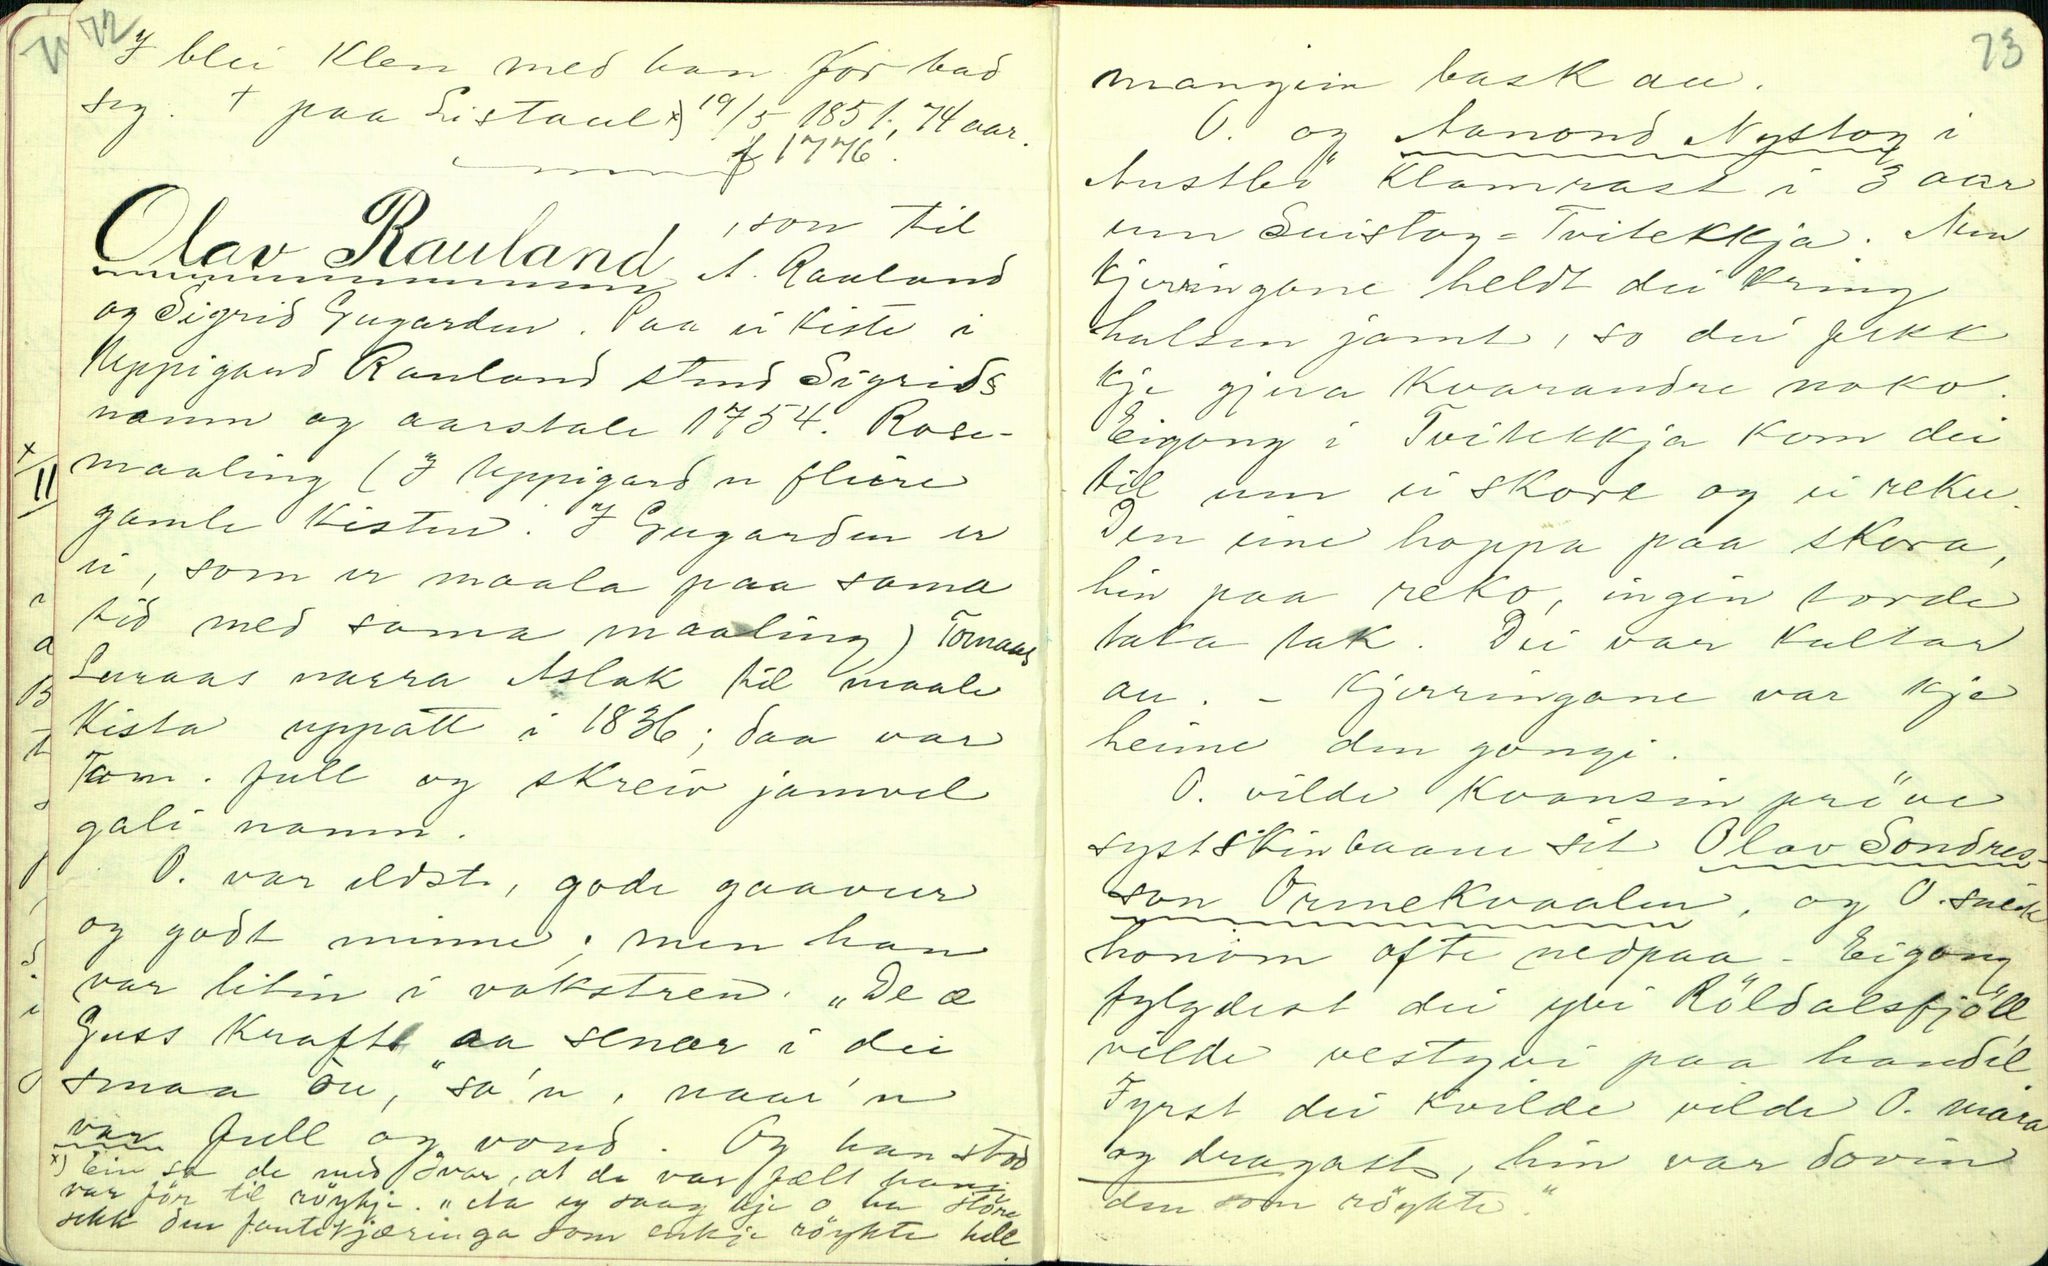 72
I blei klen med han for bad
seg. † paa Listaul x) 19/5 1851, 74 aar.
f 1776.
Olav Rauland, son til
A. Rauland
og Sigrid Gugarden. Paa ei kiste i
Uppigard Rauland stend Sigrids
namn og aarstale 1754. Rose-
maaling (I Uppigard er fleire
gamle kistur. I Gugarden er
ei, som er maala paa sama
tid med sama maaling) Tomaas
Luraas narra Aslak til maale
kista uppatt i 1836; daa var
Tom. full og skreiv jamvel
gali namn.
O. var eldst, gode gaavur
og godt minne; men han
var litin i vokstren. "De æ
Guss kraft aa senar i dei
smaa òu," sa'n, naar'n
var full og vond. Og han stod
x) Ein sa de med Ivar, at da var fælt hans
var för til röykje. "Aa eg saag kje o ha större
sekk den fantekjæringa som enkje röykte hell
x/II
73
mangein bask au.
O. og Aanond Nystog i
Austbö klamrast i 3 aar
um Suistog-Tvitekkja. Men
kjerringane heldt dei kring
halsen jamt, so dei fekk
kje gjera kvarandre noko.
Eigong i Tvitekkja kom dei
til um ei skore og ei reku.
Den eine hoppa paa skora,
hin paa reko, ingen torde
taka tak. Dei var kultar
au. - Kjerringane var kje
heime den gongi.
O. vilde kvansin pröve
systkinbaane sit Olav Sondres-
son Ormekvaalen, og O. sleik
honom ofte nedpaa - Eigong
fylgdest dei yvi Röldalsfjöll,
vilde vestyvi paa handil.
Fyrst dei kvilde vilde O. mara
og dragast, hin var dovin
den som röykte."